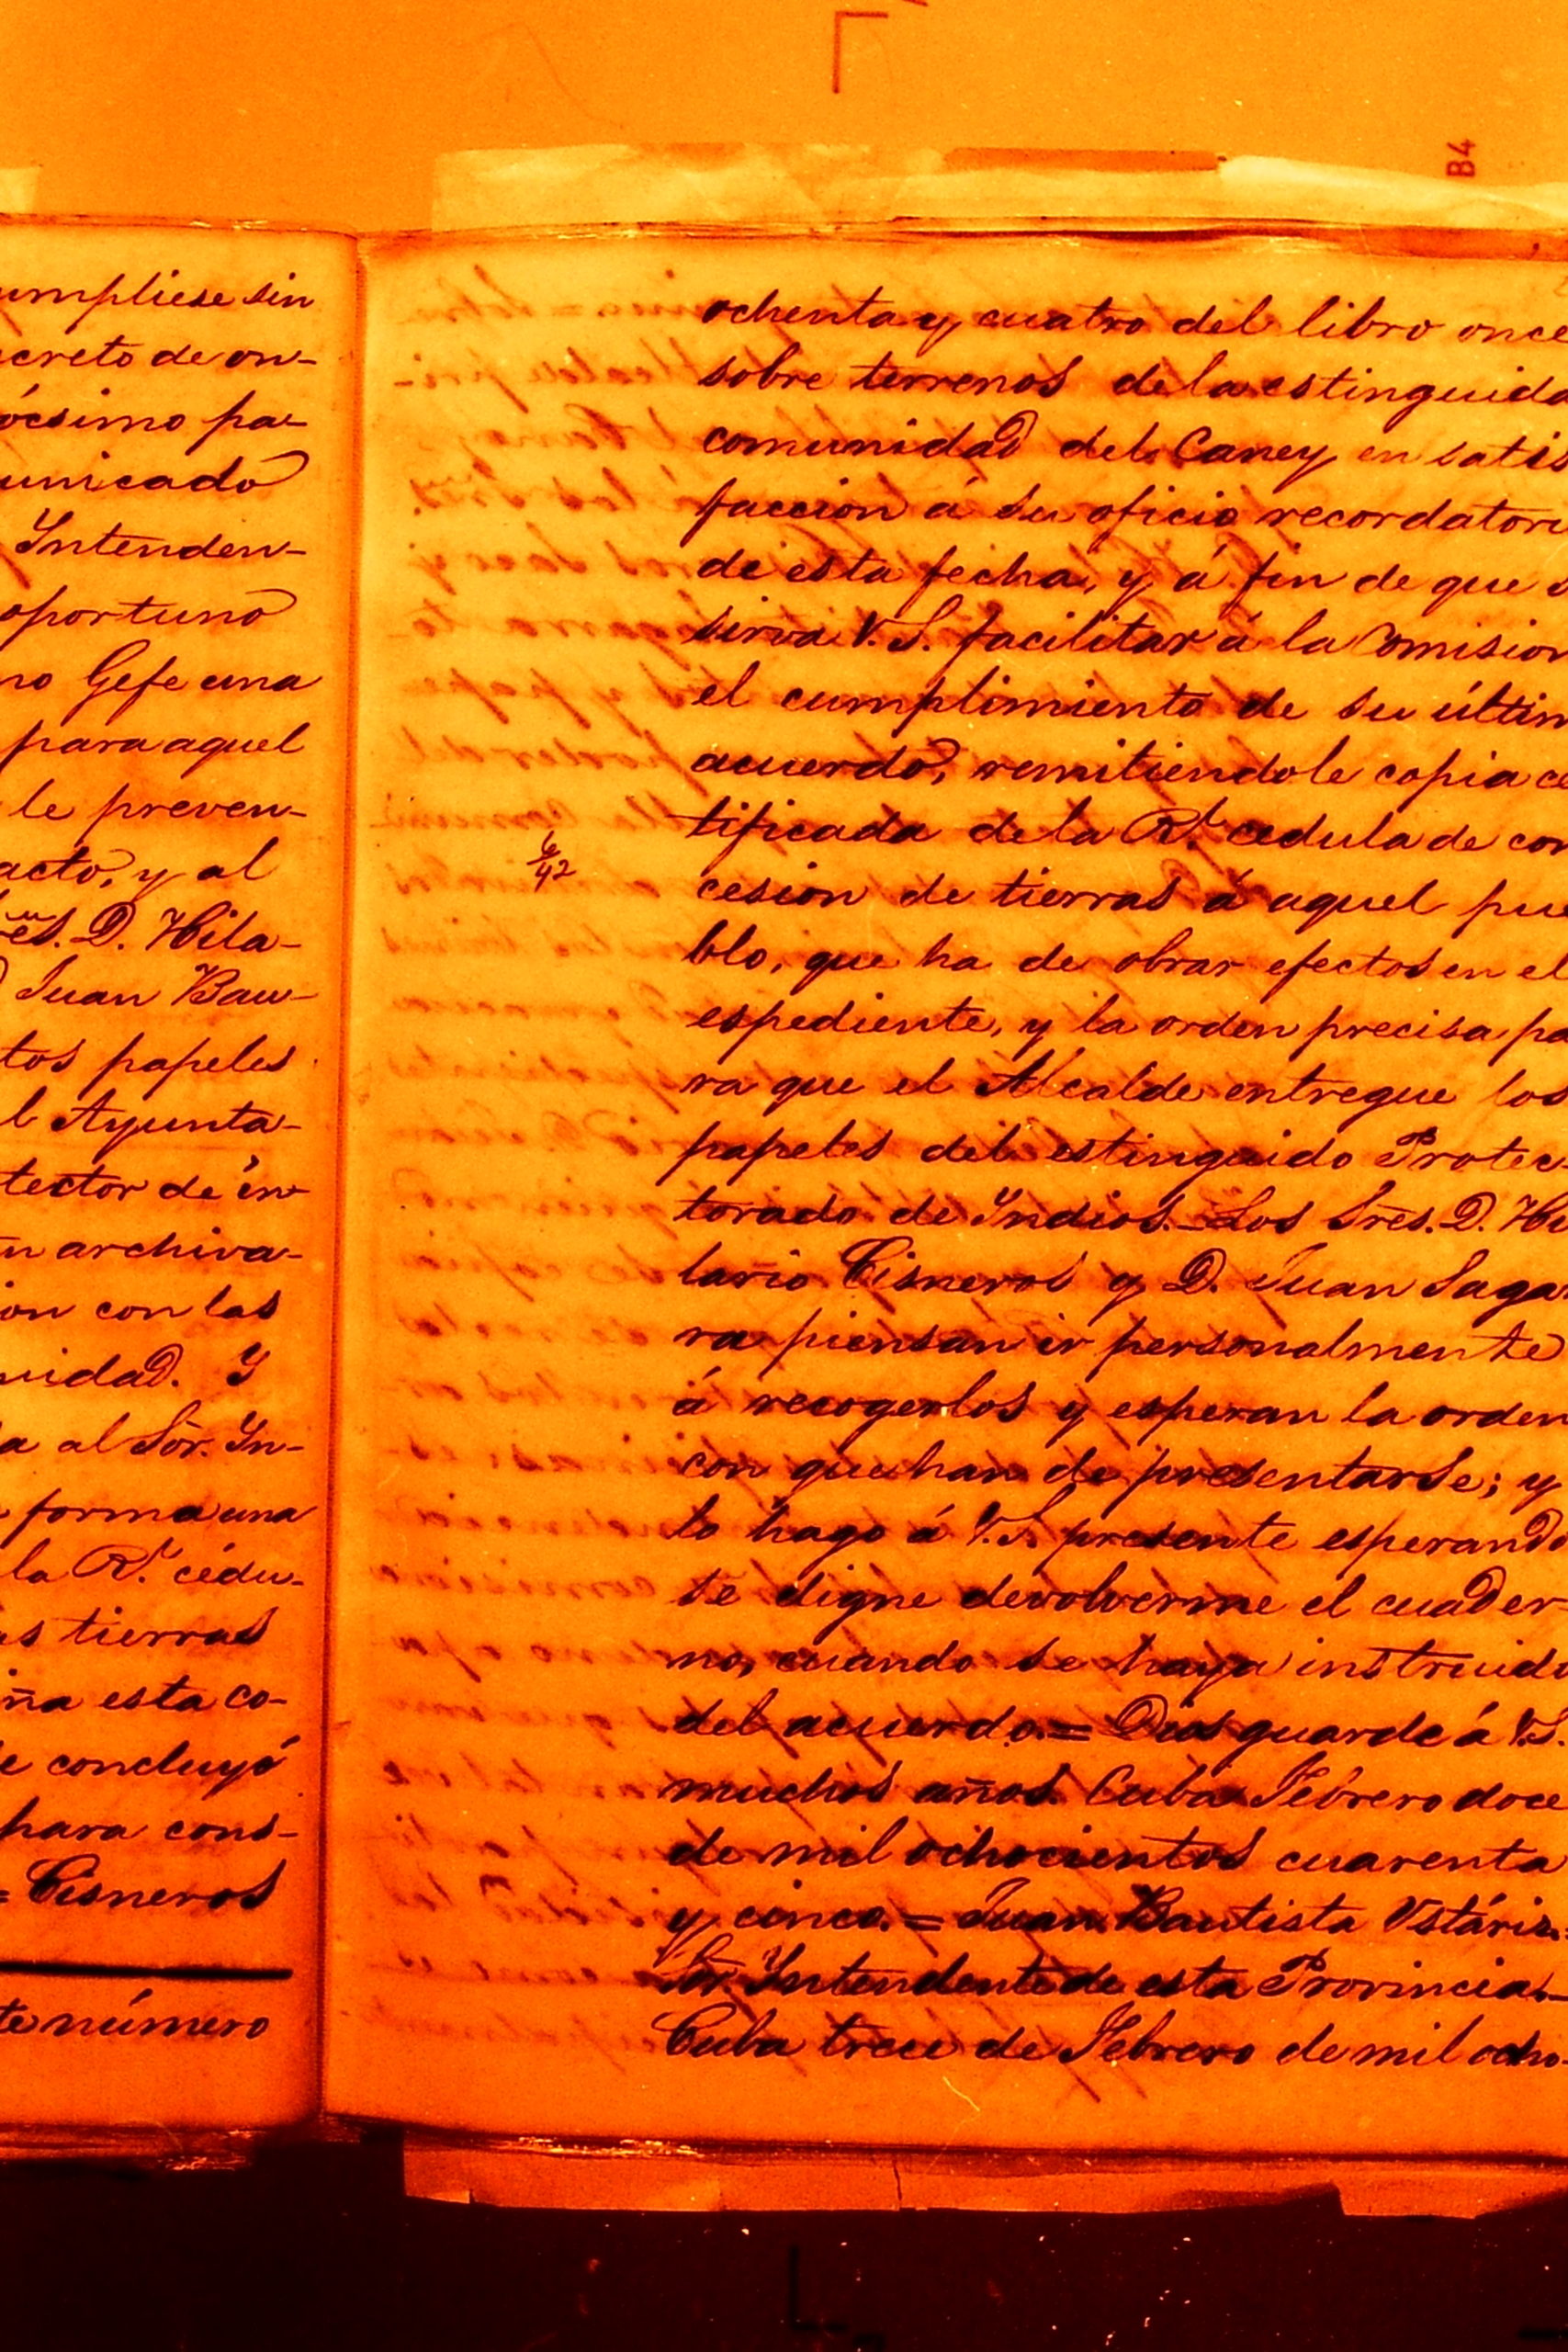 B4
umpliese sin
creto de on-
ócsimo pa-
unicado
Intenden-
oportuno
no Gefe una
para aquel
le preven-
acto, y al
D. Hila-
Juan Bau-
tos papeles
l Ayunta-
tector de in-
n archiva-
ion con las
nidad. Y
a al Sōr. In-
forma una
la Rl. cédu-
as tierras
ña esta co-
e concluyó
para cons-
= Cisneros
te número
ochenta y cuatro del libro once
sobre terrenos de la estinguida
comunidad del Caney en satis
faccion á su oficio recordatori
de esta fecha, y á fin de que s
sirva V. S. facilitar á la Comision
el cumplimiento de su últim
acuerdo, remitiendole copia ce
tificada de la Rl. cedula de con
6/42
cesion de tierras á aquel pue
blo, que ha de obrar efectos en el
espediente, y la orden precisa pa
ra que el Alcalde entregue los
papeles del estinguido Protec
torado de Indios.=Los Srēs. D. Hi
lario Cisneros y D. Juan Sagar
ra piensan ir personalmente
á recogerlos y esperan la orden
con que han de presentarse; y
lo hago á V. S. presente esperando
se digne devolverme el cuader-
no, cuando se haya instruido
del acuerdo.= Dios guarde á V. S.
muchos años. Cuba Febrero doce
de mil ochocientos cuarenta
y cinco.= Juan Bautista Ustáriz=
Sōr. Intendente de esta Provincia.=
Cuba trece de Febrero de mil ocho-